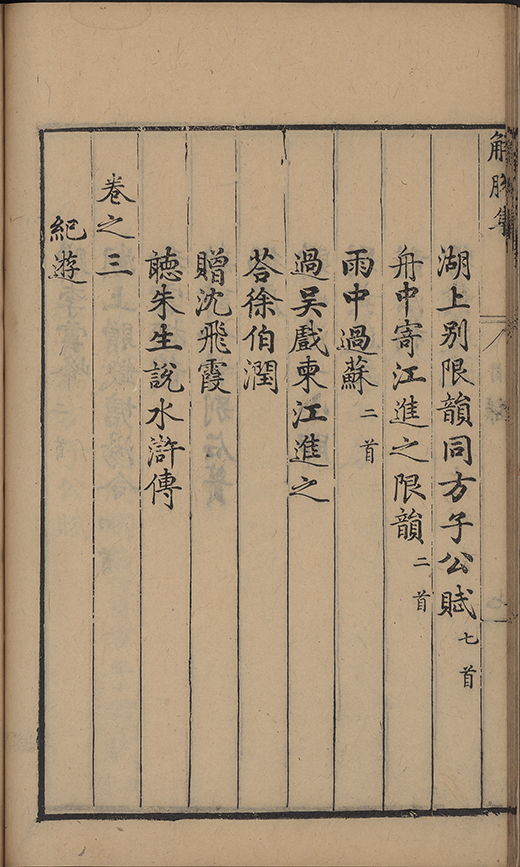 解脫集
湖上別限韻同方子公賦 七首
舟中寄江進之限韻 二首
雨中過蘇 二首
過吳戲柬江進之
荅徐伯潤
贈沈飛霞
聽朱生說水滸傳
卷之三
紀遊